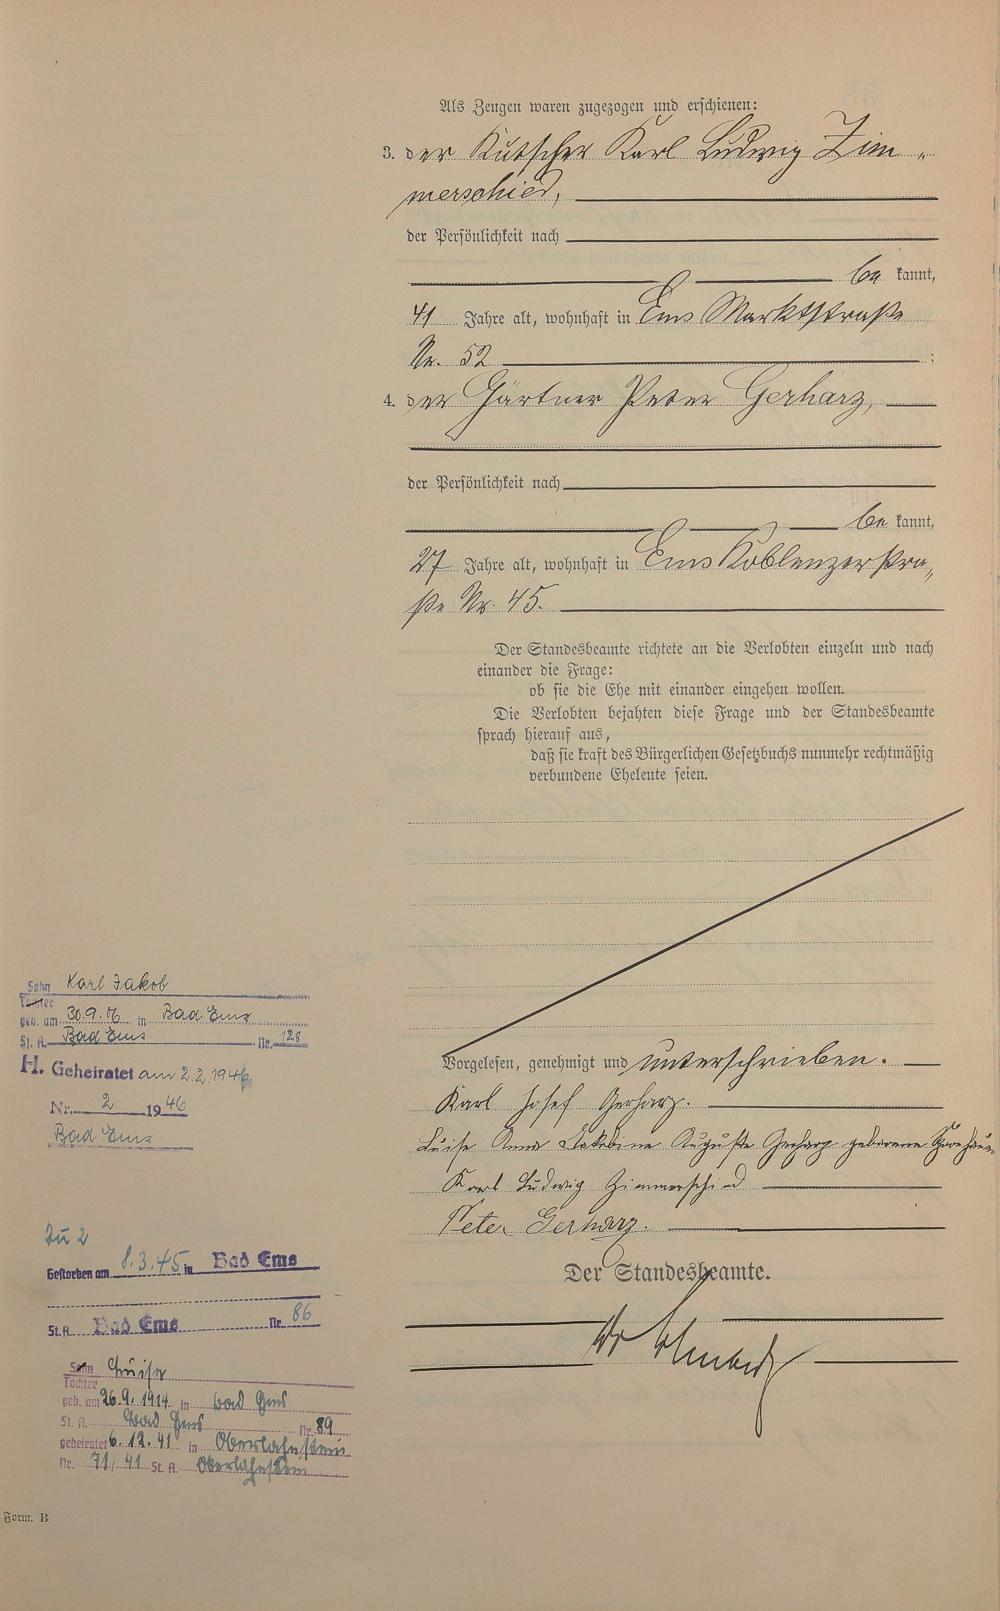 Als Zeugen waren zugezogen und erschienen:
3. der Kutscher Karl Ludwig Zim„
merschied,
der Persönlichkeit nach
be kannt,
41 Jahre alt, wohnhaft in Ems Marktstraße
Nr. 52 ;
4. der Gärtner Peter Gerharz,
der Persönlichkeit nach
be kannt,
27 Jahre alt, wohnhaft in Ems Koblenzerstra„
ße Nr. 45.
Der Standesbeamte richtete an die Verlobten einzeln und nach
einander die Frage:
ob sie die Ehe mit einander eingehen wollen.
Die Verlobten bejahten diese Frage und der Standesbeamte
sprach hierauf aus,
daß sie kraft des Bürgerlichen Gesetzbuchs nunmehr rechtmäßig
verbundene Eheleute seien.
Vorgelesen, genehmigt und unterschrieben.
Karl Josef Gerharz.
Luise Anna Jakobine Auguste Gerharz geborene
Karl Ludwig Zimmerschied
Peter Gerharz.
Der Standesbeamte.
Sohn Karl Jakob
Tochter
geb. am 30.9. in Bad Ems
St. A. Bad Ems Nr. 128
H. Geheiratet am 2.2.1946
Nr. 2 1946
Bad Ems
Zu 2
Gestorben am 8.3.45 in Bad Ems
St. A. Bad Ems Nr. 86
Sohn Luise
Tochter
geb. am 26.9.1914 in Bad Ems
St. A. Bad Ems Nr. 89
geheiratet 6.12.41 in Oberlahnstein
Nr. 71/41 St. A. Oberlahnstein
Form. B